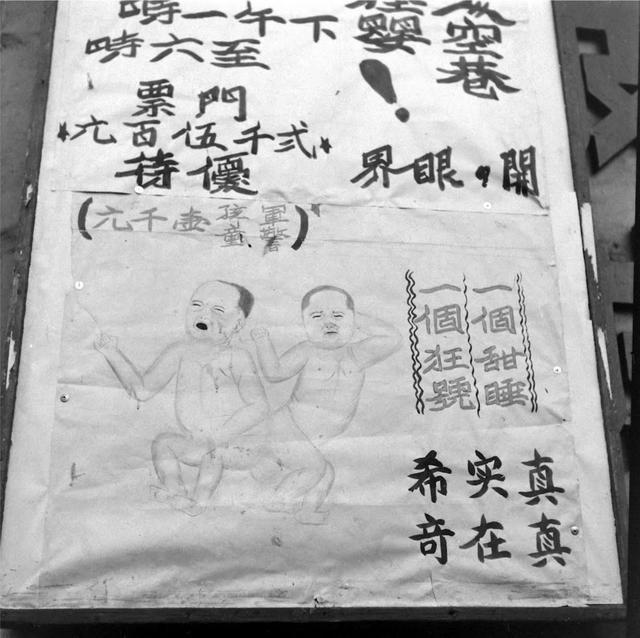 空巷
嬰！
開，眼界
下午一時
至六時
門票
★弍千伍百元★
優待
（軍警孩童壹千元）
一個甜睡
一個狂號
真真
实在
希奇